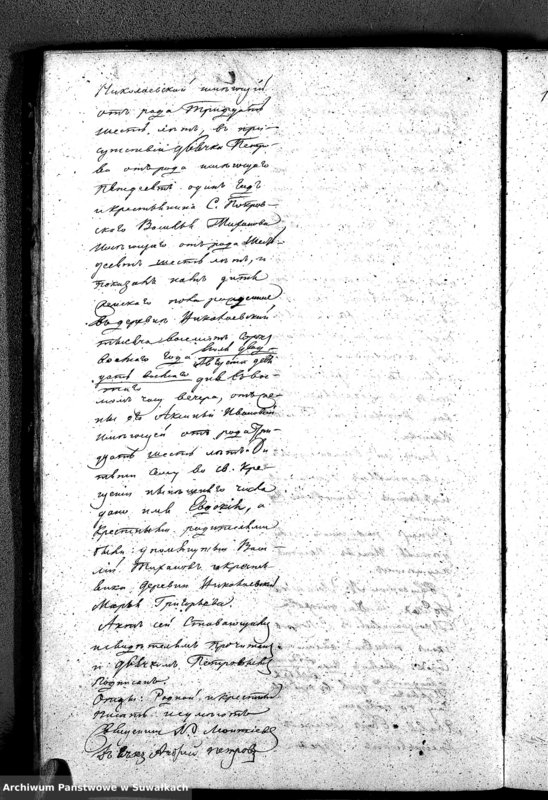 Николаевской имѣющій
отъ рода тридцать
шесть лѣтъ, въ при-
сутствіи дьячка Петро-
ва отъ рода имѣющаго
одинъ годъ
и крестьянина С. Покров-
скаго Василья Тиханова
имѣющаго отъ рода шесть-
десятъ шесть лѣтъ, и
показалъ намъ дитя
женскаго пола рожденное
въ деревни Николаевской
тысяча восемьсотъ сорокъ
года
дня въ вось-
момъ часу вечера, отъ же-
ны его Акилины Ивановой
имѣющей отъ рода три-
дцать шесть лѣтъ. Ди-
тяти сему во св. Кре-
щеніи нынѣшняго числа
дано имя Евдокія, а
крестными родителями
были: упомянутый Васи-
лій Тихановъ и крестья-
нка деревни Николаевской
Марья Григорьева.
Актъ сей объявляющему
и свидѣтелямъ прочитанъ
и дьячкомъ Петровымъ
подписанъ.
Отецъ: Родной и крестный
писать не умѣютъ
Священник
Дьячекъ Андрей Петровъ
Archiwum Państwowe w Suwałkach